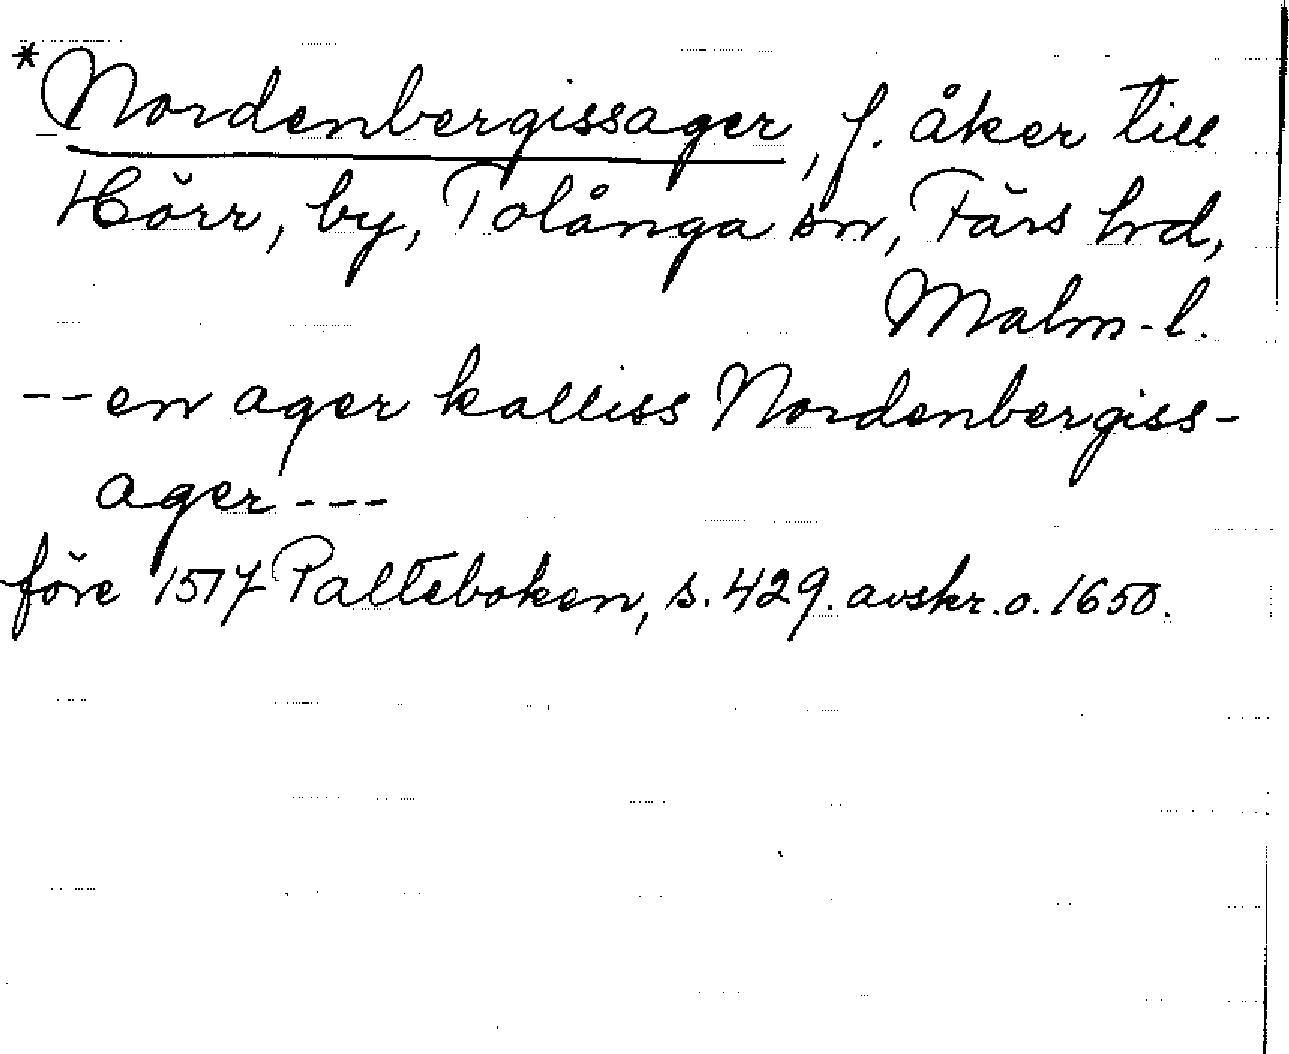 *Nordenbergissager, f. åker till
Hörr, by, Tolånga sn, Färs hrd,
Malm-l.
--en ager kalliss Nordenbergiss-
ager---
före 1517 Palteboken, s. 429. avskr. o. 1650.